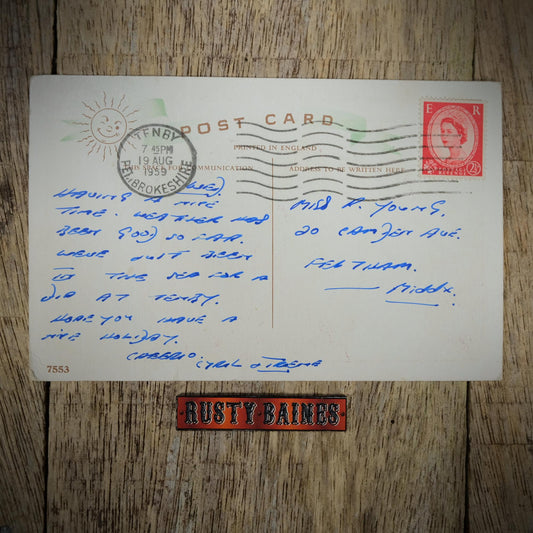 POST CARD
PRINTED IN ENGLAND
THIS SPACE FOR COMMUNICATION
ADDRESS TO BE WRITTEN HERE
TENBY
7 45PM
19 AUG
1959
PEMBROKESHIRE
E R
2½
HAVING A NICE
TIME. WEATHER HAS
BEEN GOOD SO FAR.
WEVE JUST BEEN
IN THE SEA FOR A
DIP AT TENBY.
HOPE YOU HAVE A
NICE HOLIDAY.
CHEERIO.
CYRIL & IRENE
MISS R. YOUNG.
20 CAMDEN AVE.
FELTHAM.
MIDDX.
7553
RUSTY·BAINES